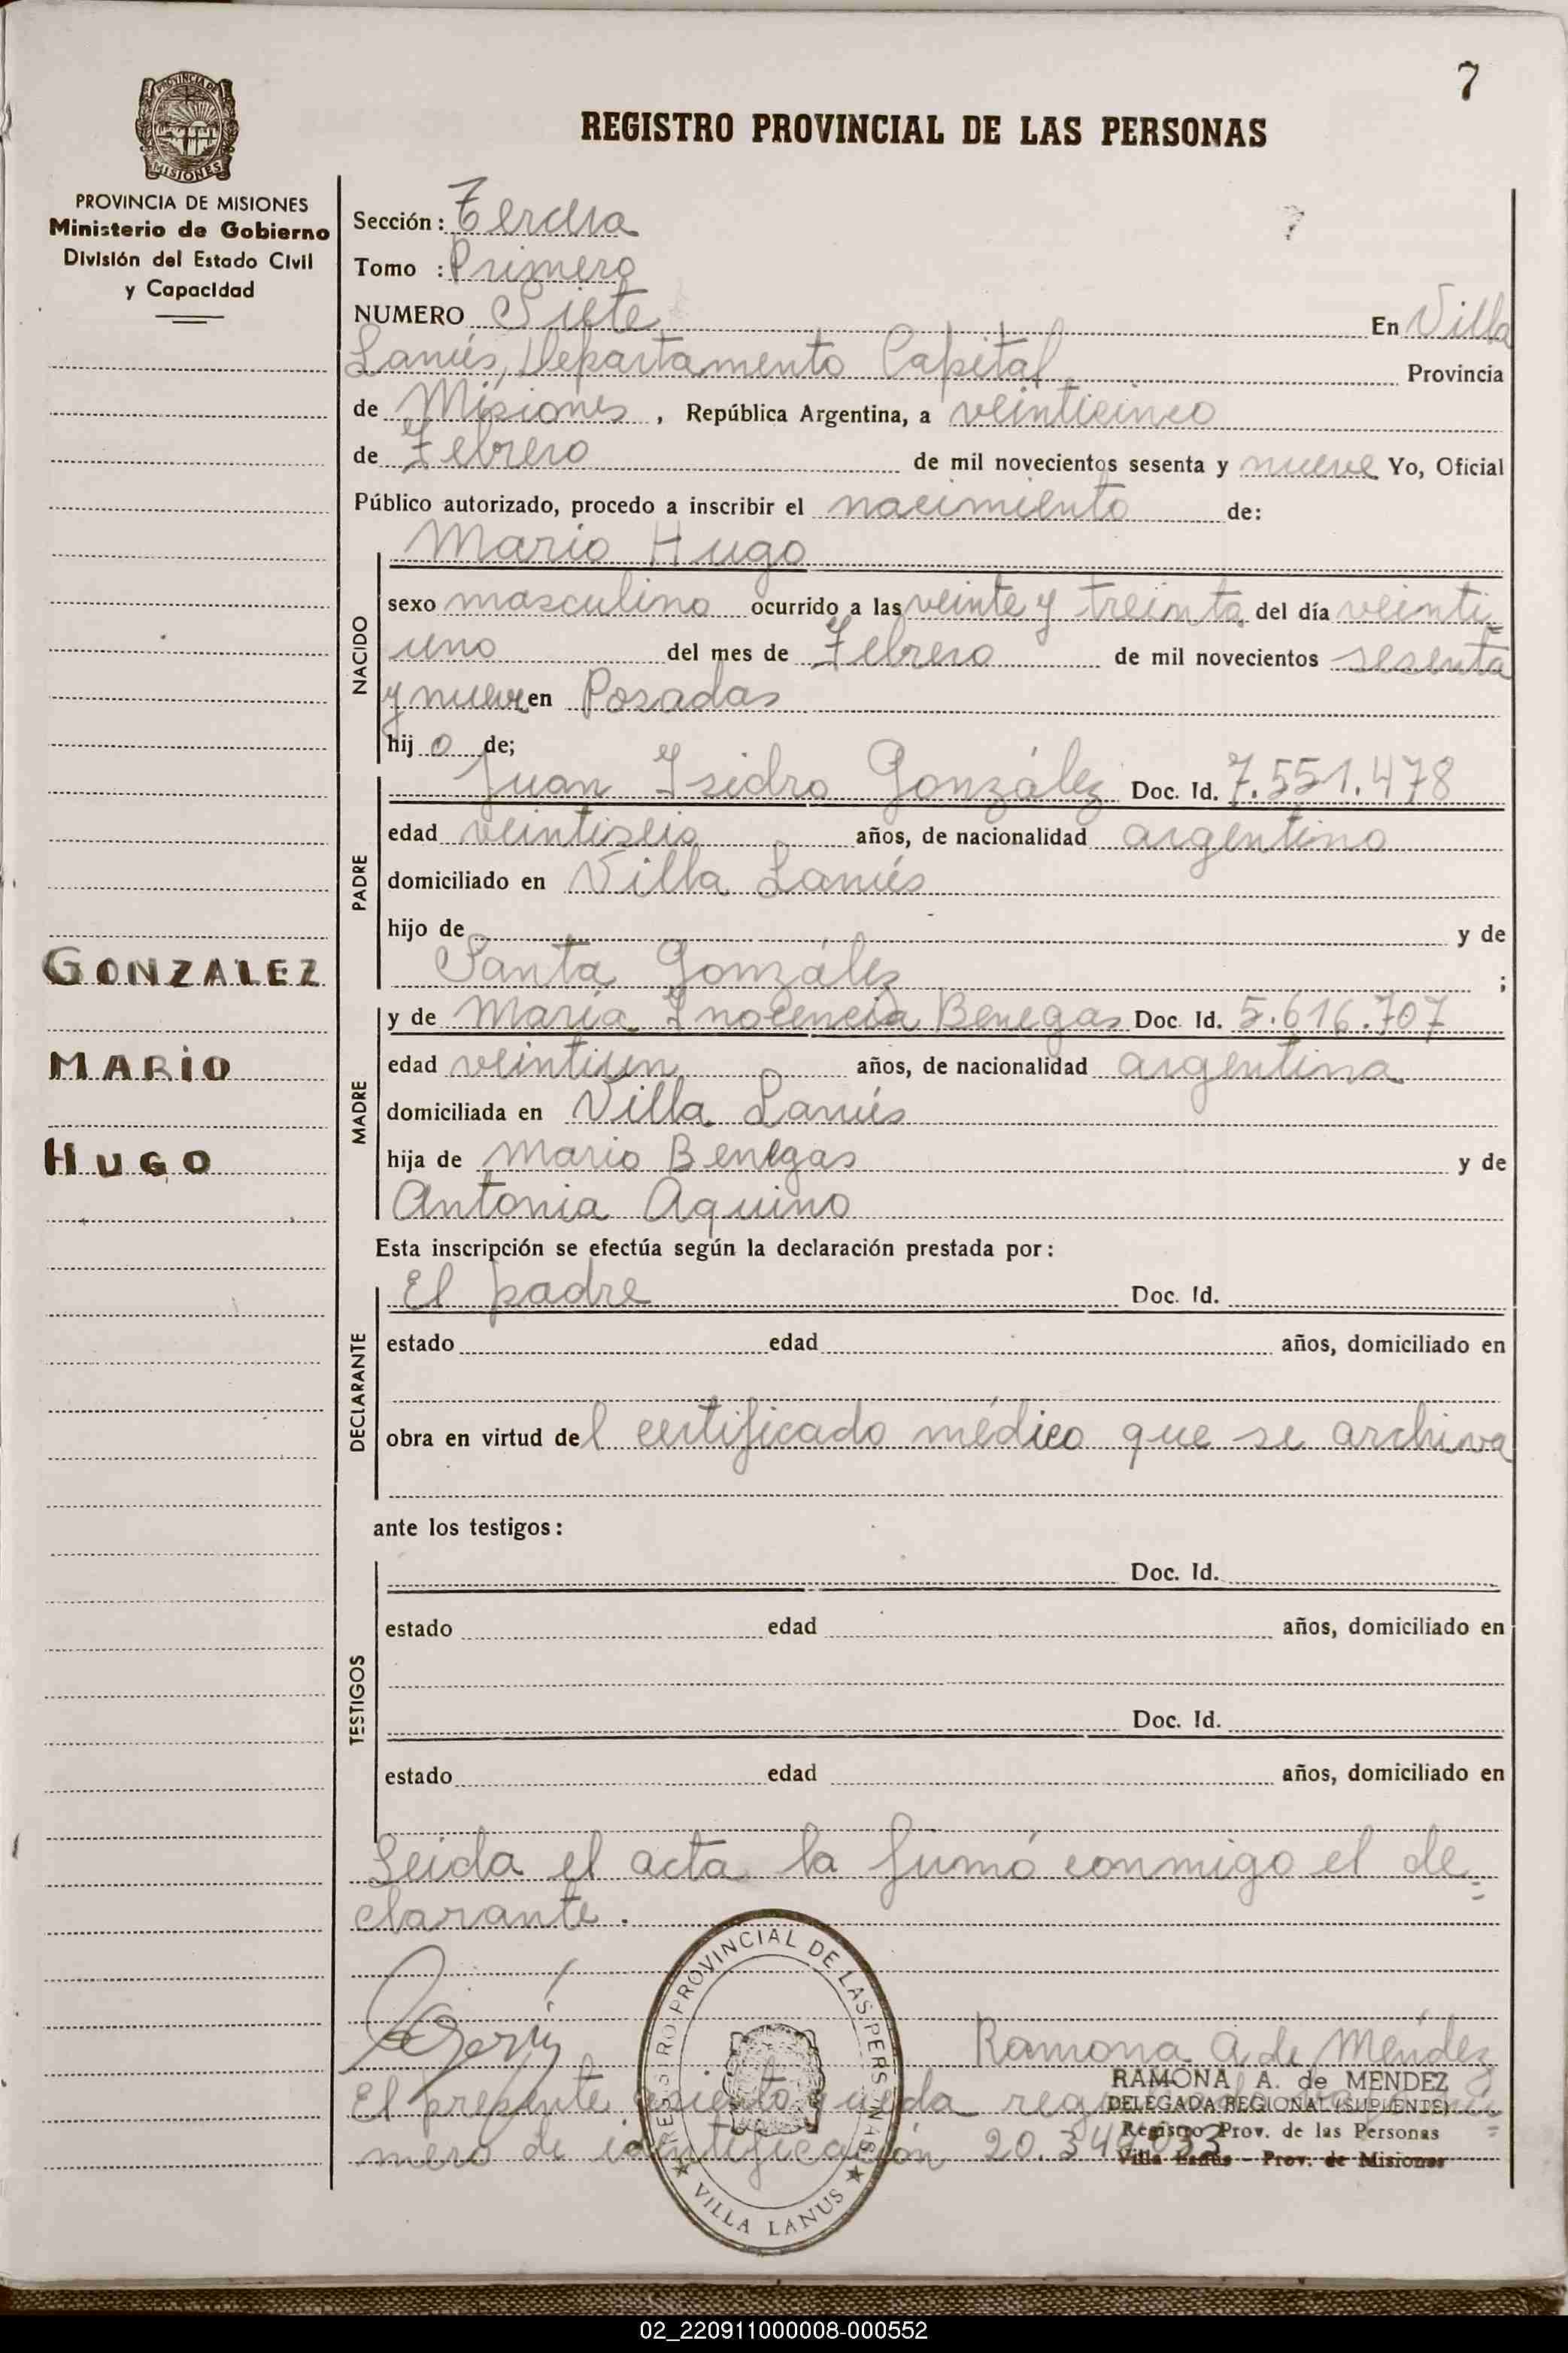 7
REGISTRO PROVINCIAL DE LAS PERSONAS
PROVINCIA DE MISIONES
PROVINCIA DE MISIONES
Ministerio de Gobierno
División del Estado Civil
y Capacidad
GONZALEZ
MARIO
HUGO
7
Sección: Tercera
Tomo : Primero
NUMERO Siete En Villa
Lanús, Departamento Capital Provincia
de Misiones, República Argentina, a veinticinco
de Febrero de mil novecientos sesenta y nueve Yo, Oficial
Público autorizado, procedo a inscribir el nacimiento de:
Mario Hugo
NACIDO
sexo masculino ocurrido a las veinte y treinta del día veinti
uno del mes de Febrero de mil novecientos sesenta
y nueve en Posadas
hij o de;
Juan Isidro González Doc. Id. 7.551.478
PADRE
edad veintiseis años, de nacionalidad argentino
domiciliado en Villa Lanús
hijo de y de
Santa González ;
y de María Inocencia Benegas Doc. Id. 5.616.707
MADRE
edad veintiun años, de nacionalidad argentina
domiciliada en Villa Lanús
hija de Mario Benegas y de
Antonia Aquino
Esta inscripción se efectúa según la declaración prestada por:
El padre Doc. Id.
DECLARANTE
estado edad años, domiciliado en
obra en virtud del certificado médico que se archiva
ante los testigos:
Doc. Id.
TESTIGOS
estado edad años, domiciliado en
Doc. Id.
estado edad años, domiciliado en
Leida el acta la firmó conmigo el de=
clarante.
REGISTRO PROVINCIAL DE LAS PERSONAS
VILLA LANUS
Ramona A de Méndez
RAMONA A. de MENDEZ
DELEGADA REGIONAL (SUPLENTE)
Registro Prov. de las Personas
Villa Lanús - Prov. de Misiones
El presente asiento queda
mero de identificación 20.34
02_220911000008-000552